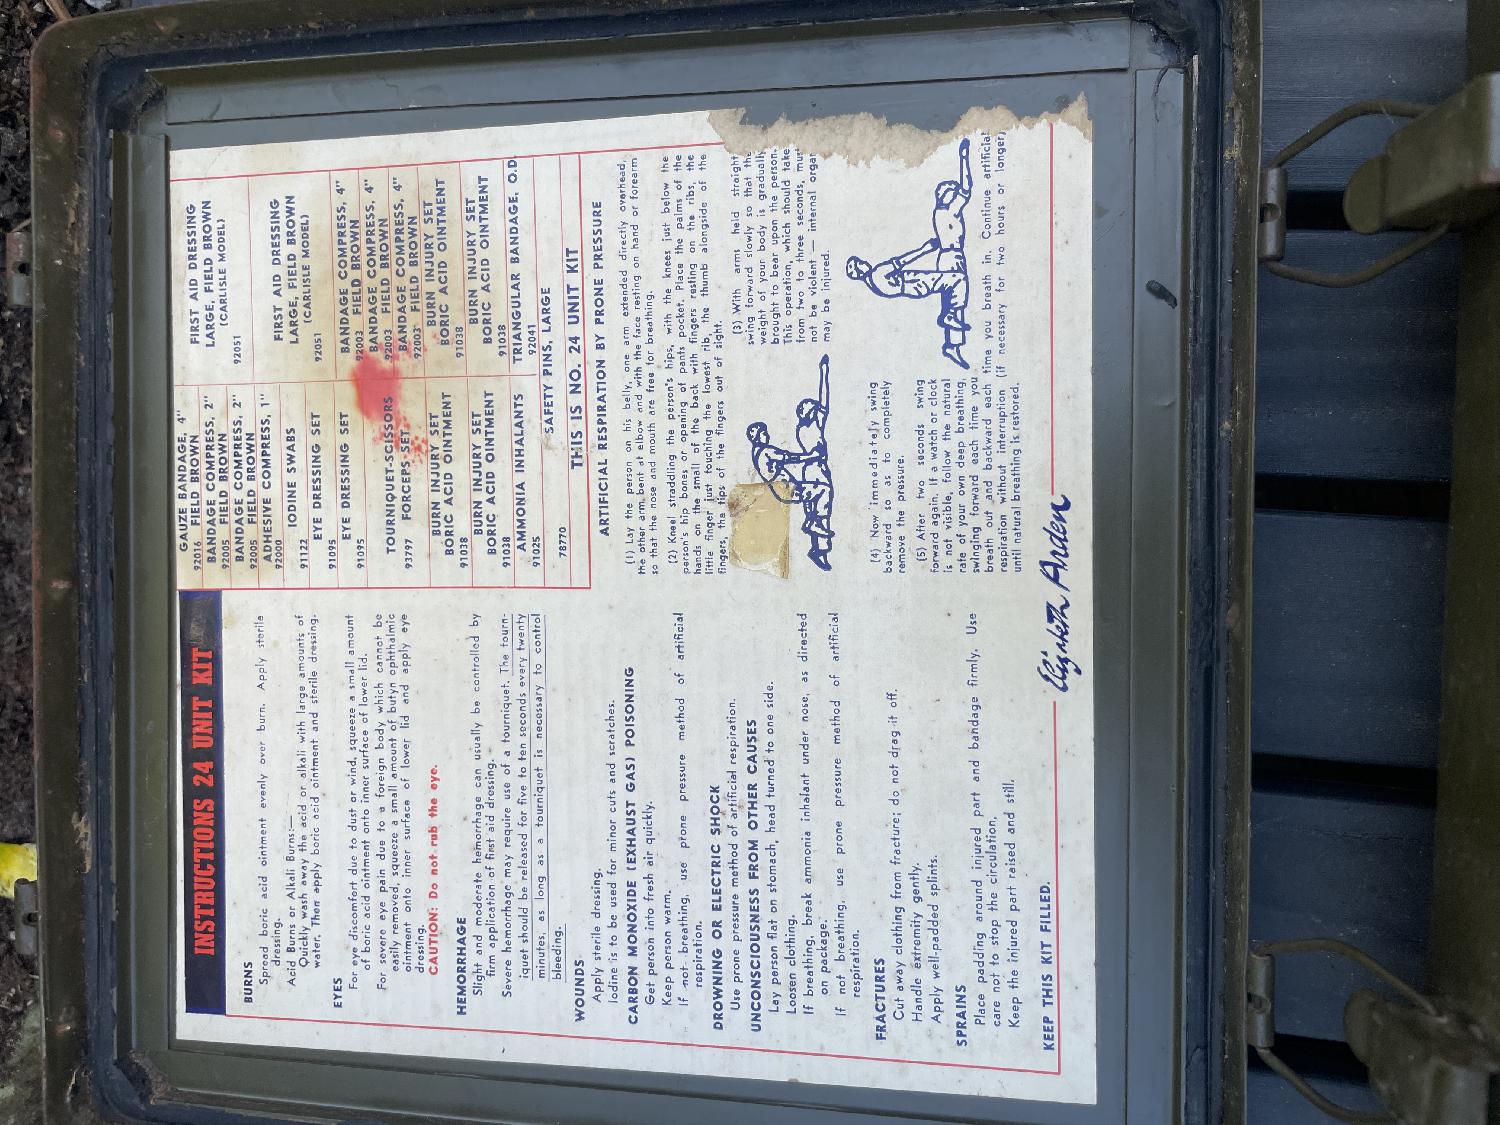 INSTRUCTIONS 24 UNIT KIT
BURNS
Spread boric acid ointment evenly over burn. Apply sterile
dressing.
Acid Burns or Alkali Burns:—
Quickly wash away the acid or alkali with large amounts of
water. Then apply boric acid ointment and sterile dressing.
EYES
For eye discomfort due to dust or wind, squeeze a small amount
of boric acid ointment onto inner surface of lower lid.
For severe eye pain due to a foreign body which cannot be
easily removed, squeeze a small amount of butyn ophthalmic
ointment onto inner surface of lower lid and apply eye
dressing.
CAUTION: Do not rub the eye.
HEMORRHAGE
Slight and moderate hemorrhage can usually be controlled by
firm application of first aid dressing.
Severe hemorrhage may require use of a tourniquet. The tourn-
iquet should be released for five to ten seconds every twenty
minutes, as long as a tourniquet is necessary to control
bleeding.
WOUNDS
Apply sterile dressing.
Iodine is to be used for minor cuts and scratches.
CARBON MONOXIDE (EXHAUST GAS) POISONING
Get person into fresh air quickly.
Keep person warm.
If not breathing, use prone pressure method of artificial
respiration.
DROWNING OR ELECTRIC SHOCK
Use prone pressure method of artificial respiration.
UNCONSCIOUSNESS FROM OTHER CAUSES
Lay person flat on stomach, head turned to one side.
Loosen clothing.
If breathing, break ammonia inhalant under nose, as directed
on package.
If not breathing, use prone pressure method of artificial
respiration.
FRACTURES
Cut away clothing from fracture; do not drag it off.
Handle extremity gently.
Apply well-padded splints.
SPRAINS
Place padding around injured part and bandage firmly. Use
care not to stop the circulation.
Keep the injured part raised and still.
KEEP THIS KIT FILLED.
GAUZE BANDAGE, 4"
92016 FIELD BROWN
BANDAGE COMPRESS, 2"
92005 FIELD BROWN
BANDAGE COMPRESS, 2"
92005 FIELD BROWN
ADHESIVE COMPRESS, 1"
92000
IODINE SWABS
91122
EYE DRESSING SET
91095
EYE DRESSING SET
91095
TOURNIQUET-SCISSORS
93797 FORCEPS-SET
BURN INJURY SET
BORIC ACID OINTMENT
91038
BURN INJURY SET
BORIC ACID OINTMENT
91038
AMMONIA INHALANTS
91025
FIRST AID DRESSING
LARGE, FIELD BROWN
(CARLISLE MODEL)
92051
FIRST AID DRESSING
LARGE, FIELD BROWN
(CARLISLE MODEL)
92051
BANDAGE COMPRESS, 4"
92003 FIELD BROWN
BANDAGE COMPRESS, 4"
92003 FIELD BROWN
BANDAGE COMPRESS, 4"
92003 FIELD BROWN
BURN INJURY SET
BORIC ACID OINTMENT
91038
BURN INJURY SET
BORIC ACID OINTMENT
91038
TRIANGULAR BANDAGE, O.D
92041
SAFETY PINS, LARGE
78770
THIS IS NO. 24 UNIT KIT
ARTIFICIAL RESPIRATION BY PRONE PRESSURE
(1) Lay the person on his belly, one arm extended directly overhead,
the other arm bent at elbow and with the face resting on hand or forearm
so that the nose and mouth are free for breathing.
(2) Kneel straddling the person's hips, with the knees just below the
person's hip bones or opening of pants pocket. Place the palms of the
hands on the small of the back with fingers resting on the ribs, the
little finger just touching the lowest rib, the thumb alongside of the
fingers, the tips of the fingers out of sight.
(3) With arms held straight
swing forward slowly so that the
weight of your body is gradually
brought to bear upon the person.
This operation, which should take
from two to three seconds, must
not be violent — internal organ
may be injured.
(4) Now immediately swing
backward so as to completely
remove the pressure.
(5) After two seconds swing
forward again. If a watch or clock
is not visible, follow the natural
rate of your own deep breathing,
swinging forward each time you
breath out and backward each time you breath in. Continue artificial
respiration without interruption (if necessary for two hours or longer)
until natural breathing is restored.
Elizabeth Arden